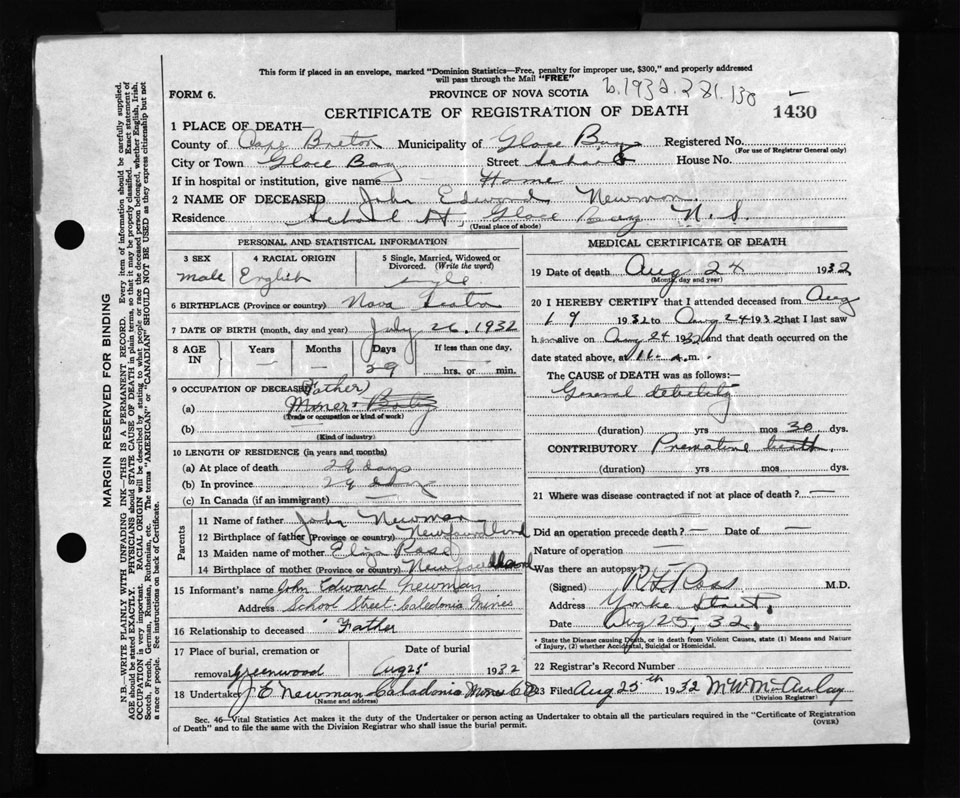 This form if placed in an envelope, marked "Dominion Statistics—Free, penalty for improper use, $300," and properly addressed
will pass through the Mail "FREE"
FORM 6.
PROVINCE OF NOVA SCOTIA
b.1932.281.130
CERTIFICATE OF REGISTRATION OF DEATH
1430
1 PLACE OF DEATH—
County of Cape Breton Municipality of Glace Bay Registered No.
(For use of Registrar General only)
City or Town Glace Bay Street School House No.
If in hospital or institution, give name Home
2 NAME OF DECEASED John Edward Newman
Residence School St, Glace Bay N. S.
(Usual place of abode)
PERSONAL AND STATISTICAL INFORMATION
3 SEX
male
4 RACIAL ORIGIN
English
5 Single, Married, Widowed or
Divorced. (Write the word)
6 BIRTHPLACE (Province or country) Nova Scotia
7 DATE OF BIRTH (month, day and year) July 26, 1932
8 AGE IN
Years —
Months —
Days 29
If less than one day.
hrs. or min.
9 OCCUPATION OF DECEASED (Father)
(a) Miner Baby
(Trade or occupation or kind of work)
(b)
(Kind of industry)
10 LENGTH OF RESIDENCE (in years and months)
(a) At place of death 29 days
(b) In province 29 days
(c) In Canada (if an immigrant) —
Parents
11 Name of father John Newman
12 Birthplace of father (Province or country) Newfoundland
13 Maiden name of mother Eliza Rose
14 Birthplace of mother (Province or country) Newfoundland
15 Informant's name John Edward Newman
Address School Street Caledonia Mines
16 Relationship to deceased Father
17 Place of burial, cremation or Date of burial
removal Greenwood Aug 25 1932
18 Undertaker J E Newman Caledonia Mines C B
(Name and address)
MEDICAL CERTIFICATE OF DEATH
19 Date of death Aug 24 1932
(Month, day and year)
20 I HEREBY CERTIFY that I attended deceased from Aug
19 1932 to Aug 24 1932 that I last saw
h im alive on Aug 24 1932 and that death occurred on the
date stated above, at 11 a.m.
The CAUSE of DEATH was as follows:—
General debility
(duration) yrs mos 30 dys.
CONTRIBUTORY Premature birth.
(duration) yrs mos dys.
21 Where was disease contracted if not at place of death? —
Did an operation precede death? — Date of —
Nature of operation —
Was there an autopsy?
(Signed) Ross M.D.
Address Yorke Street,
Date Aug 25, 32.
* State the Disease causing Death, or in death from Violent Causes, state (1) Means and Nature
of Injury, (2) whether Accidental, Suicidal or Homicidal.
22 Registrar's Record Number
23 Filed Aug 25th 1932 M W McAulay
(Division Registrar)
Sec. 46—Vital Statistics Act makes it the duty of the Undertaker or person acting as Undertaker to obtain all the particulars required in the "Certificate of Registration
of Death" and to file the same with the Division Registrar who shall issue the burial permit.
(OVER)
MARGIN RESERVED FOR BINDING
N.B.—WRITE PLAINLY WITH UNFADING INK—THIS IS A PERMANENT RECORD. Every item of information should be carefully supplied.
AGE should be stated EXACTLY. PHYSICIANS should STATE CAUSE OF DEATH in plain terms, so that it may be properly classified. Exact statement of
OCCUPATION is very important. RACIAL ORIGIN will be described by stating to what people or race the deceased person belonged, whether English, Irish,
Scotch, French, German, Russian, Ruthenian, etc. The terms "AMERICAN" or "CANADIAN" SHOULD NOT BE USED as they express citizenship but not
a race or people. See instructions on back of Certificate.